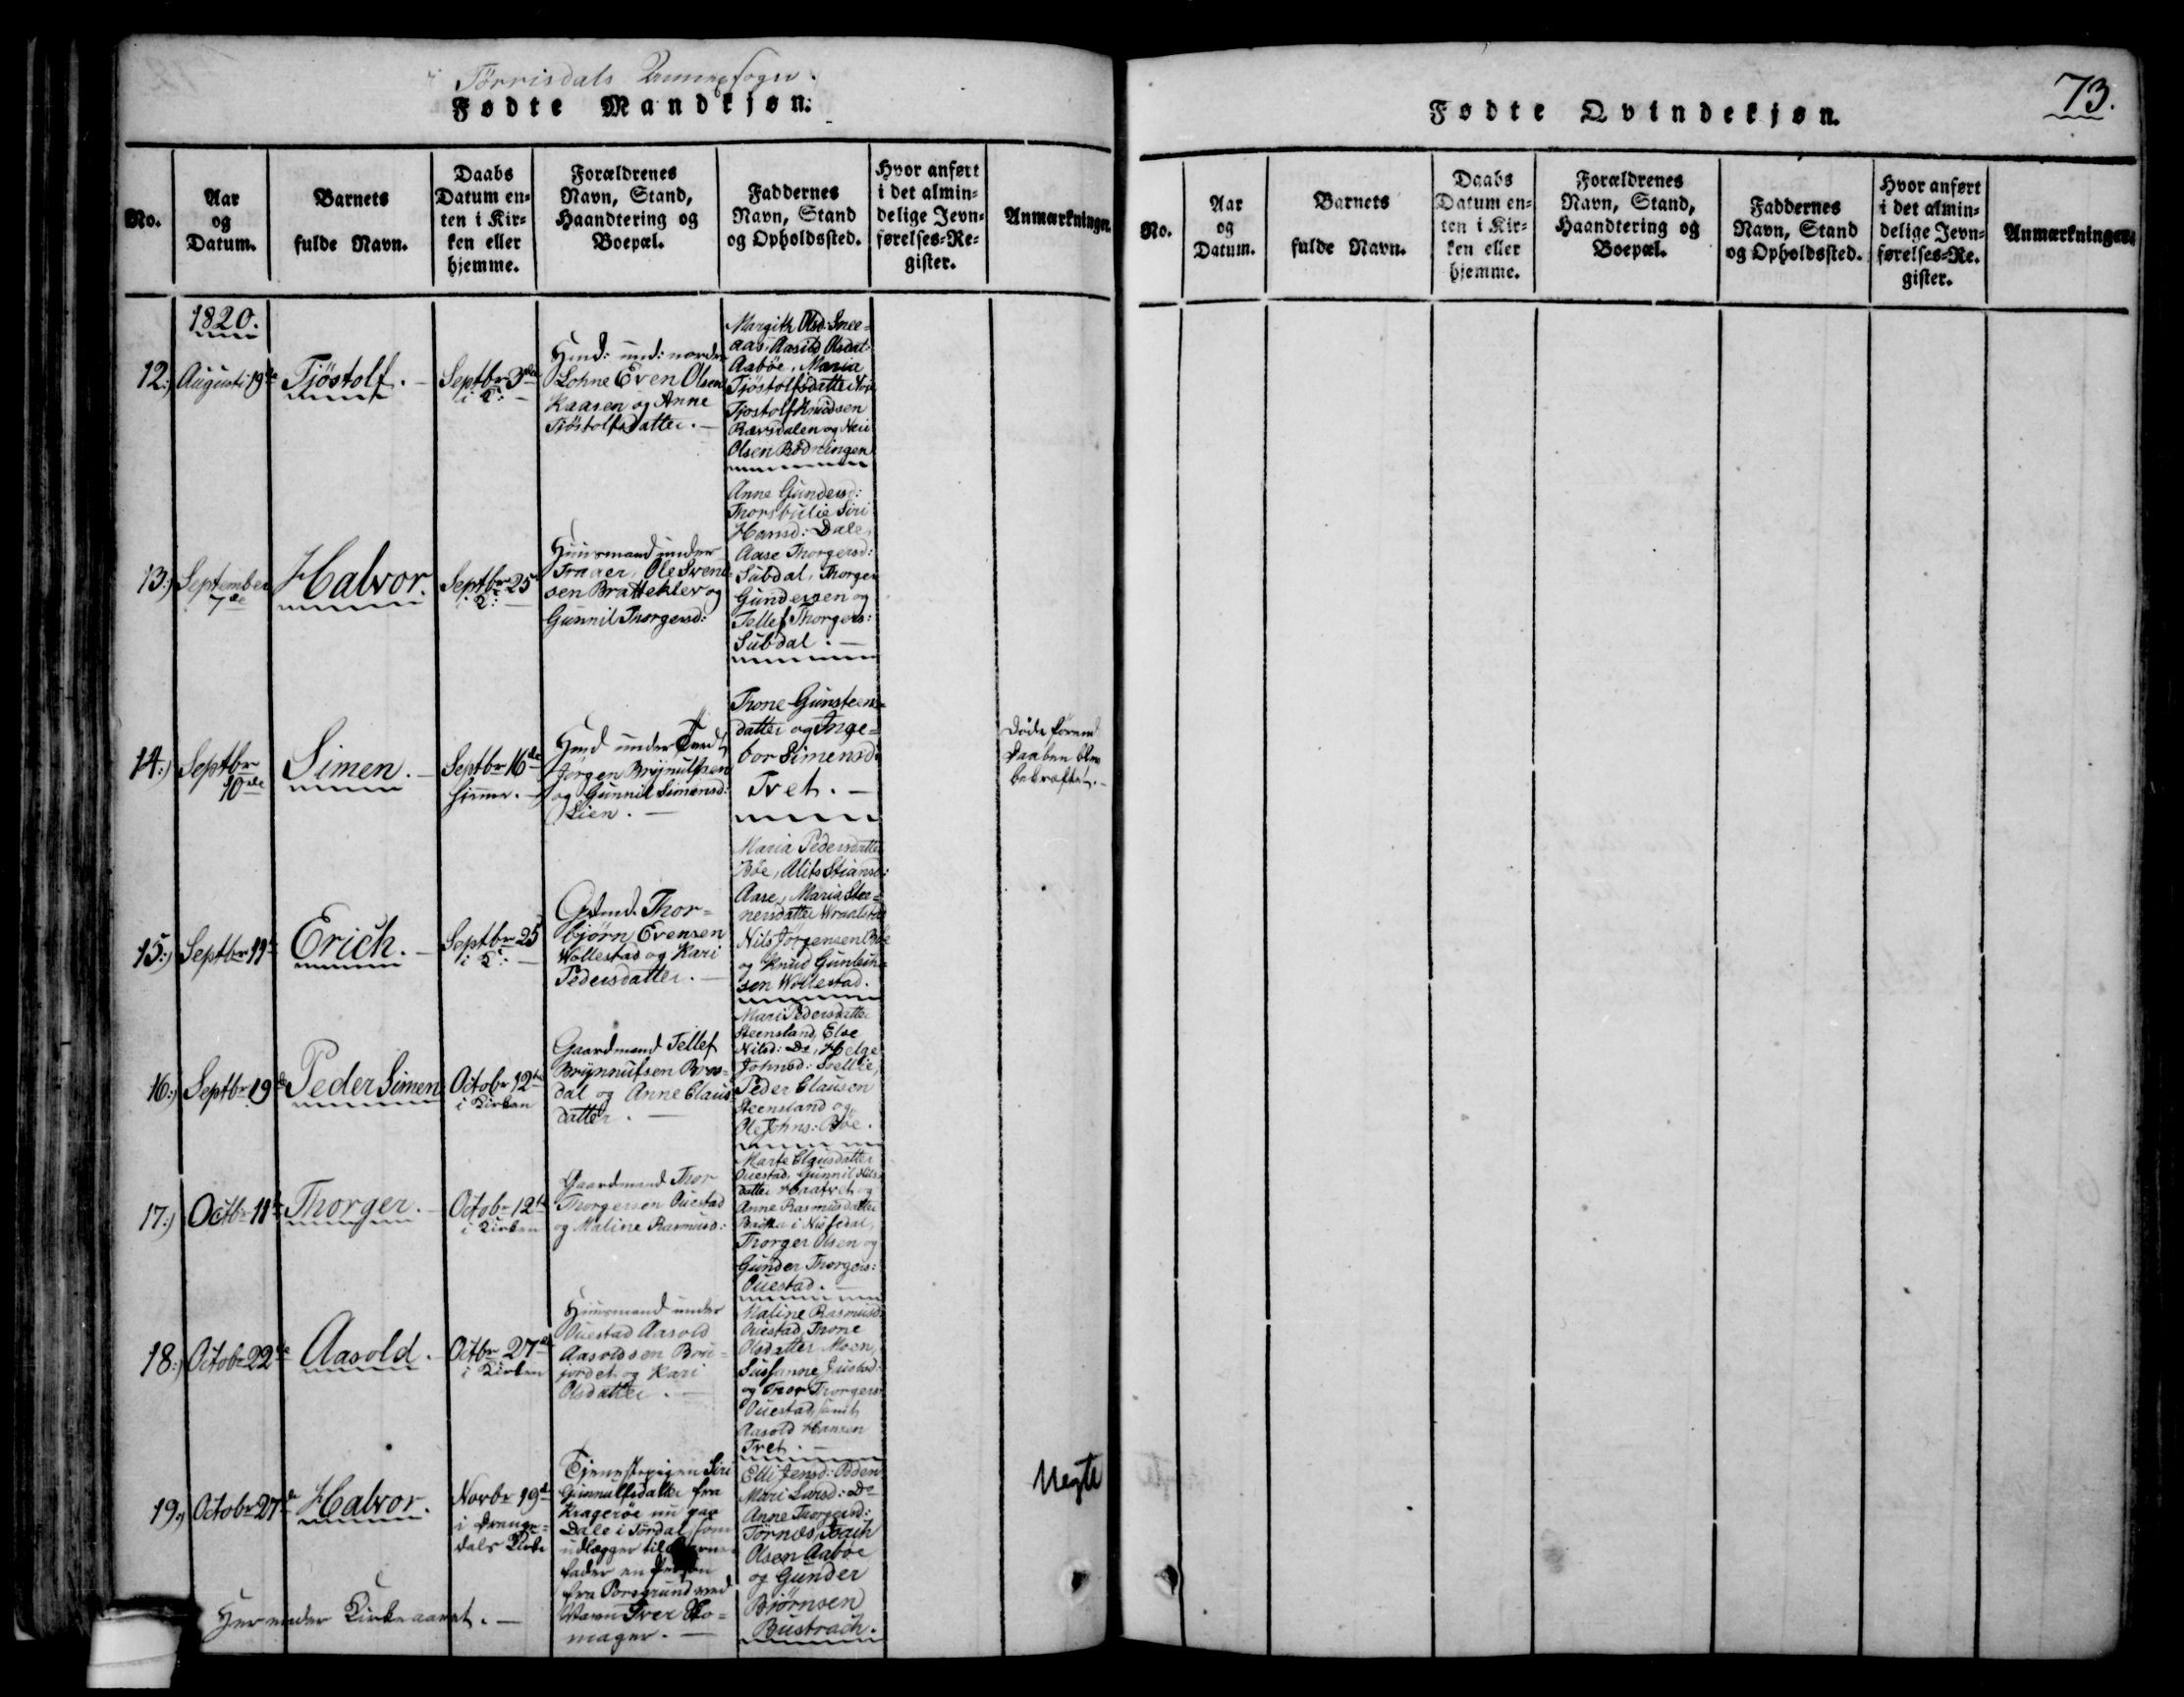 Tørrisdals
Fødte Mandkjøn.
No.
Aar
og
Datum.
Barnets
fulde Navn.
Daabs
Datum en-
ten i Kir-
ken eller
hjemme.
Forældrenes
Navn, Stand,
Haandtering og
Boepæl.
Faddernes
Navn, Stand
og Opholdssted.
Hvor anført
i det almin-
delige Jevn-
førelses-Re-
gister.
Anmærkninger.
1820.
12.)
Augusti 19de
Tjöstolf.
Septbr 3die
i K:
Huusd: und: nordre
Lohne Even Olsen
Kaasen og Anne
Tjöstolfsdatter.
Margith Olsd: Snee-
aas, Aasild Olsdat:
Aaböe, Maria
Tjöstolfsdatter
Tjostolf Knudsen
Rævsdalen og Neri
Olsen Bödningen
13.)
September
7de
Halvor.
Septbr 25
i K:
Huusmand under
Traaer, Ole Svend-
sen Bratteklev og
Gunnil Thorgersd:
Anne Gundersd:
Thorsbulie Siri
Hansd: Dale,
Aase Thorgersd:
Subdal, Thorger
Gundersen og
Tellef Thorgers:
Subdal.
14.)
Septbr
10de
Simen.
Septbr 16de
hjemme.
Huusd under Tvedt
Jørgen Brynulfsen
og Gunnil Simensd:
Lien.
Thone Gunsteens-
datter og Inge-
bor Simensd:
Tvet.
Døde forend
Daaben blev
bekræftet.
15.)
Septbr 11te
Erich.
Septbr 25
i K:
Gdmd. Thor-
bjørn Evensen
Wollestad og Kari
Pedersdatter.
Maria Pedersdatter
Böe, Alits Stiansd:
Aase, Maria Stee-
nersdatter Wraalstad
Nils Jørgensen Böe
og Knud Gunleik-
sen Wollestad.
16.)
Septbr 19de
Peder Simen
Octobr 12te
i Kirken
Gaardmand Tellef
Brynnulfsen Bros-
dal og Anne Claus-
datter.
Mari Pedersdatter
Steensland, Else
Nilsd: Do, Helge
Johnsd:
Peder Clausen
Steensland og
Ole Johns: Böe.
17.)
Octbr 11te
Thorger.
Octobr 12te
i Kirken
Gaardmand Thor
Thorgersen Ouestad
og Maline Rasmusd:
Marte Clausdatter
Ouestad, Gunnil Nils-
datter Haatvet og
Anne Rasmusdatter
i Nissedal,
Thorger Olsen og
Gunder Thorgers:
Ouestad.
18.)
Octobr 22de
Aasold.
Octbr 27de
i Kirken
Huusmand under
Ouestad Aasold
Aasoldsen Brei-
jordet og Kari
Olsdatter.
Maline Rasmusd:
Ouestad, Thone
Olsdatter Moen,
Sussanne
og Thor Thorgers:
Ouestad, samt
Aasold Hansen
Tvet.
19.)
Octobr 27de
Halvor.
Novbr 19de
i Drange-
dals Kirke
Tjenestepigen Siri
Gunnulfsdatter fra
Kragerøe nu paa
Dale i Tördal, som
udlægger til Barne-
fader en Person
fra Porsgrund ved
Navn Iver Sko-
mager.
Elli Jensd: Boden
Mari Larsd: Do
Anne Thorgersd:
Törnes, Isach
Olsen Aaböe
og Gunder
Bjørnsen
Bustrach.
Uegte
Her ender Kirkeaaret.
73.
Fødte Qvindekjøn.
No.
Aar
og
Datum.
Barnets
fulde Navn.
Daabs
Datum en-
ten i Kir-
ken eller
hjemme.
Forældrenes
Navn, Stand,
Haandtering og
Boepæl.
Faddernes
Navn, Stand
og Opholdssted.
Hvor anført
i det almin-
delige Jevn-
førelses-Re-
gister.
Anmærkninger.